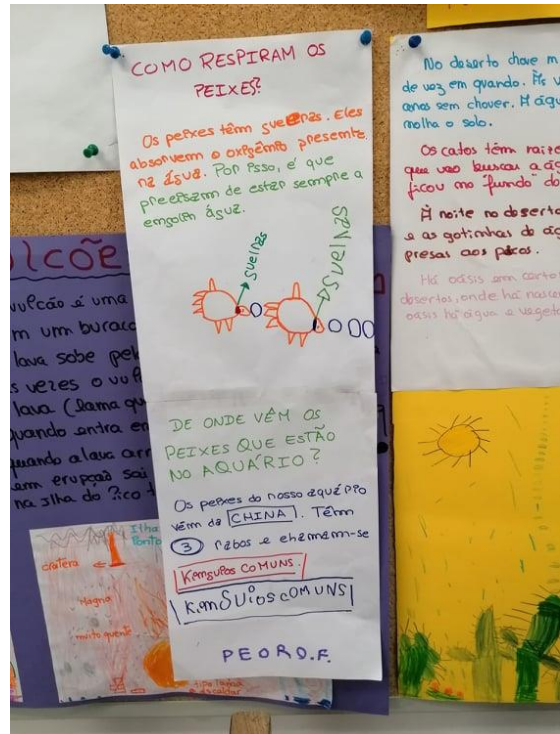 COMO RESPIRAM OS
PEIXES?
Os peixes têm guelras. Eles
absorvem o oxigénio presente
na água. Por isso, é que
precisam de estar sempre a
engolir água.
guelras
DE ONDE VÊM OS
PEIXES QUE ESTÃO
NO AQUÁRIO?
Os peixes do nosso aquário
vêm da CHINA. Têm
3 rabos e chamam-se
Kinguios COMUNS.
KinGUios COMUNS
PEDRO.F.
No deserto chove m
de vez em quando. Às v
anos sem chover. A águ
molha o solo.
Os catos têm raíze
que vão buscar a ág
ficou no fundo d
À noite no deserto
e as gotinhas de ág
presas aos picos.
Há oásis em certo
desertos, onde há nascen
oásis há água e vegeta
LCÕE
vulcão é uma
m um buraco
lava sobe pel
s vezes o vul
lava (lama qu
quando entra en
quando a lava arr
em erupção sai
na ilha do Pico
Ilha
Ponto
cratera
Magma
muito quente